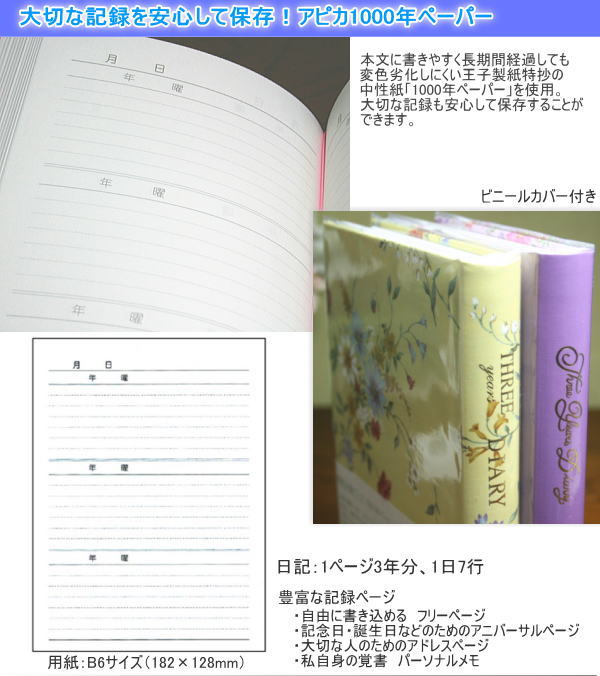 大切な記録を安心して保存！アピカ1000年ペーパー
月 日
年 曜
年 曜
年 曜
本文に書きやすく長期間経過しても
変色劣化しにくい王子製紙特抄の
中性紙「1000年ペーパー」を使用。
大切な記録も安心して保存することが
できます。
ビニールカバー付き
THREE
years
DIARY
Three Years Diary
月 日
年 曜
年 曜
年 曜
用紙：B6サイズ（182×128mm）
日記：1ページ3年分、1日7行
豊富な記録ページ
・自由に書き込める フリーページ
・記念日・誕生日などのためのアニバーサルページ
・大切な人のためのアドレスページ
・私自身の覚書 パーソナルメモ